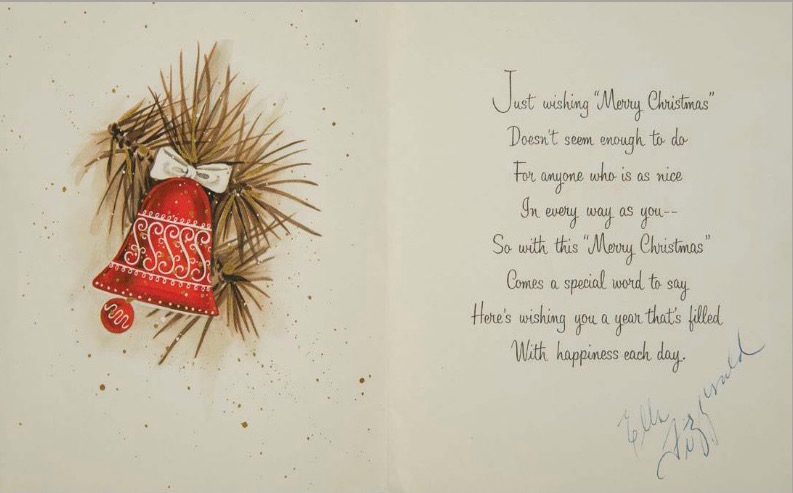 Just wishing "Merry Christmas"
Doesn't seem enough to do
For anyone who is as nice
In every way as you--
So with this "Merry Christmas"
Comes a special word to say
Here's wishing you a year that's filled
With happiness each day.
Ella
Fitzgerald